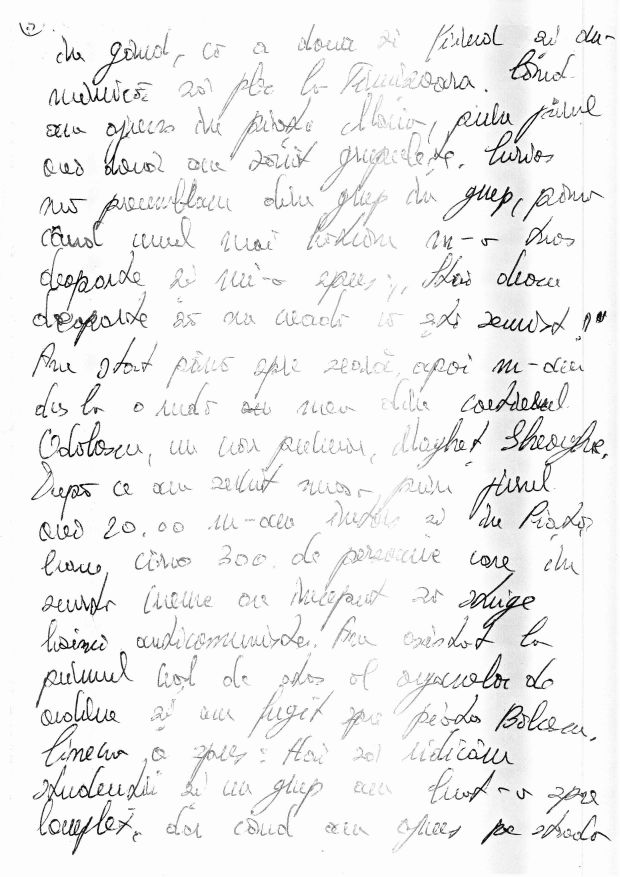 în gând, ca a doua zi fiind zi du-
minică să plec la Timișoara. Când
am ajuns în piața Maria, prin jurul
orei două am găsit grupulețe. Curios
mă preumblam din grup în grup, până
când unul mai bătrân m-a tras
deoparte și mi-a spus: „Stai deoca
deoparte să nu creadă că ești securist."
Am stat până spre seară, apoi m-am
dus la o rudă a mea din cartierul
Odobescu, un văr primar, Maghet Gheorghe.
După ce am servit masa, prin jurul
orei 20.00 m-am întors și în Piața
erau, circa 300. de persoane care în
scurtă vreme au început să strige
lozinci anticomuniste. Am asistat la
primul val de atac al organelor de
ordine și am fugit spre piața Bălcescu.
Cineva a spus: Hai să ridicăm
studenții și un grup am luat-o spre
complex, dar când am ajuns pe strada